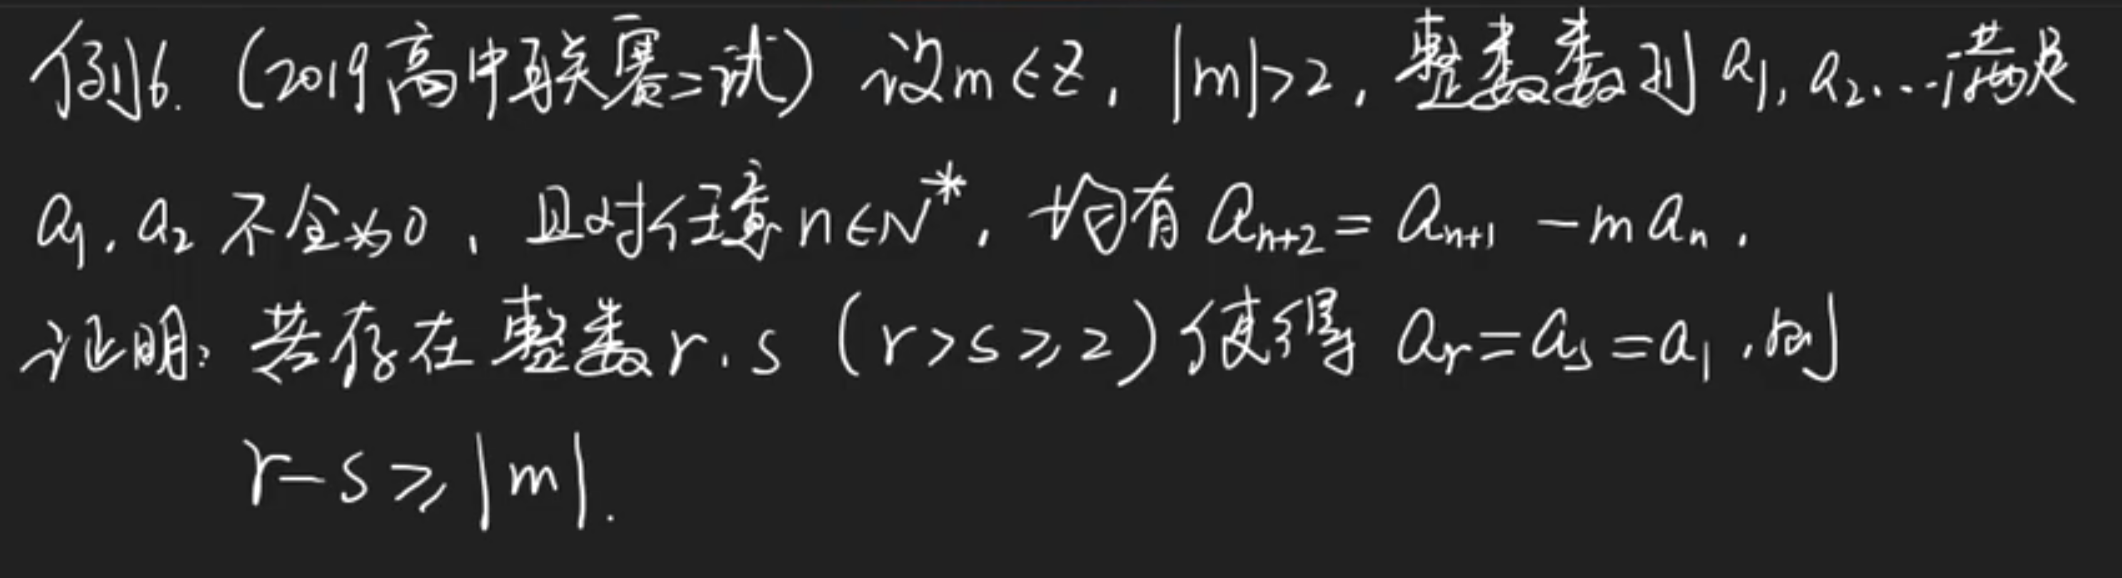 例6. (2019高中联赛二试) 设m∈Z, |m|>2, 整数数列 a₁, a₂…满足
a₁, a₂ 不全为0, 且对任意n∈N*, 均有 aₙ₊₂ = aₙ₊₁ - m aₙ.
证明: 若存在整数r.s (r>s≥2) 使得 aᵣ=aₛ=a₁, 则
r-s≥|m|.